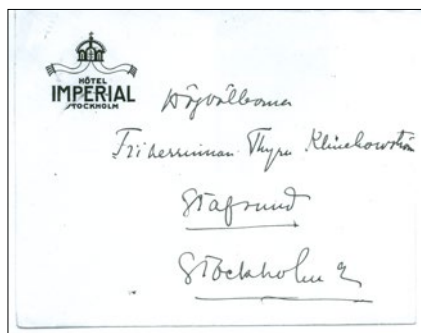 HÔTEL
IMPERIAL
STOCKHOLM
Högvälborna
Friherrinnan Thyra Klinckowström
Stafsund
Stockholm 2